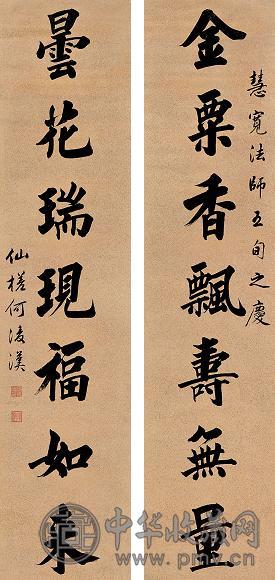 慧寬法師五旬之慶
金粟香飄壽無量
曇花瑞現福如來
仙槎何凌漢
中华收藏网
http://www.pmv.cn